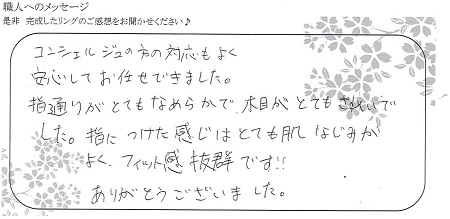 職人へのメッセージ
是非 完成したリングのご感想をお聞かせください♪
コンシェルジュの方の対応もよく
安心してお任せできました。
指通りがとてもなめらかで、木目がとてもきれいで
した。指につけた感じはとても肌なじみが
よく、フィット感抜群です!!
ありがとうございました。